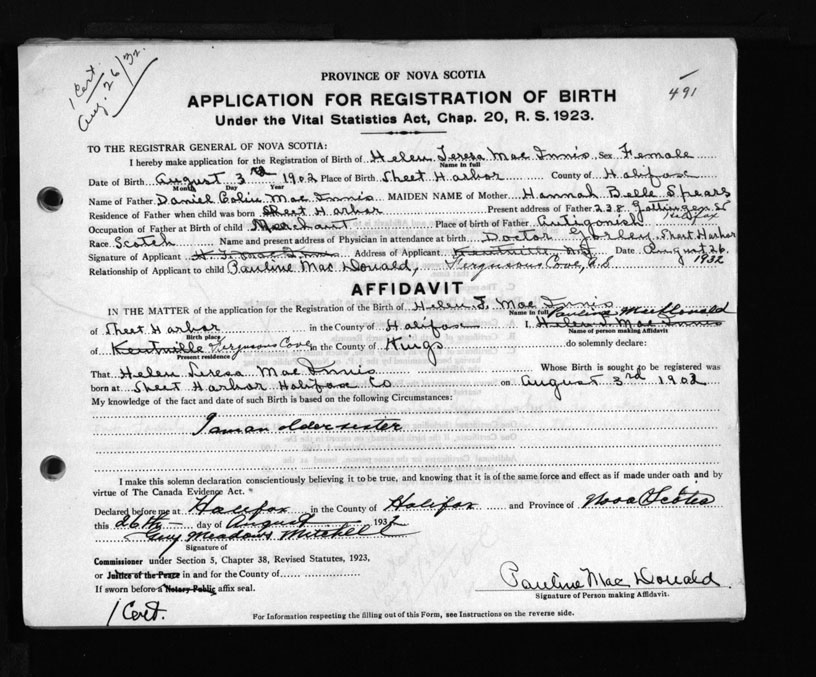 1 Cert.
Aug. 26/32.
491
PROVINCE OF NOVA SCOTIA
APPLICATION FOR REGISTRATION OF BIRTH
Under the Vital Statistics Act, Chap. 20, R. S. 1923.
TO THE REGISTRAR GENERAL OF NOVA SCOTIA:
I hereby make application for the Registration of Birth of Helen Teresa Mac Innis Sex Female
Name in full
Date of Birth August 3rd 1902 Place of Birth Sheet Harbor County of Halifax
Month Day Year
Name of Father Daniel Colin Mac Innis MAIDEN NAME of Mother Hannah Belle Spears
Residence of Father when child was born Sheet Harbor Present address of Father 238 Gottingen St
Halifax
Occupation of Father at Birth of child Merchant Place of birth of Father Antigonish
Race Scotch Name and present address of Physician in attendance at birth Doctor Sheet Harbor
Signature of Applicant H. T. Mac Innis Address of Applicant Kentville N.S. Date August 26
1932
Relationship of Applicant to child Pauline Mac Donald, Fergusons Cove, N.S
AFFIDAVIT
IN THE MATTER of the application of the Registration of the Birth of Helen T. Mac Innis
Name in full
Pauline MacDonald
of Sheet Harbor in the County of Halifax I, Helen T. Mac Innis
Birth place
Name of person making Affidavit
of Kentville Fergusons Cove in the County of Kings do solemnly declare:
Present residence
That Helen Teresa Mac Innis Whose Birth is sought to be registered was
born at Sheet Harbor Halifax Co on August 3rd 1902
My knowledge of the fact and date of such Birth is based on the following Circumstances:
I am an older sister
I make this solemn declaration conscientiously believing it to be true, and knowing that it is of the same force and effect as if made under oath and by
virtue of The Canada Evidence Act.
Declared before me at Halifax in the County of Halifax and Province of Nova Scotia
this 26th day of August 1932
Guy Meadows Mitchell
Signature of
Commissioner under Section 5, Chapter 38, Revised Statutes, 1923,
or Justice of the Peace in and for the County of
If sworn before a Notary Public affix seal.
Pauline Mac Donald
Signature of Person making Affidavit.
1 Cert.
For Information respecting the filling out of this Form, see Instructions on the reverse side.